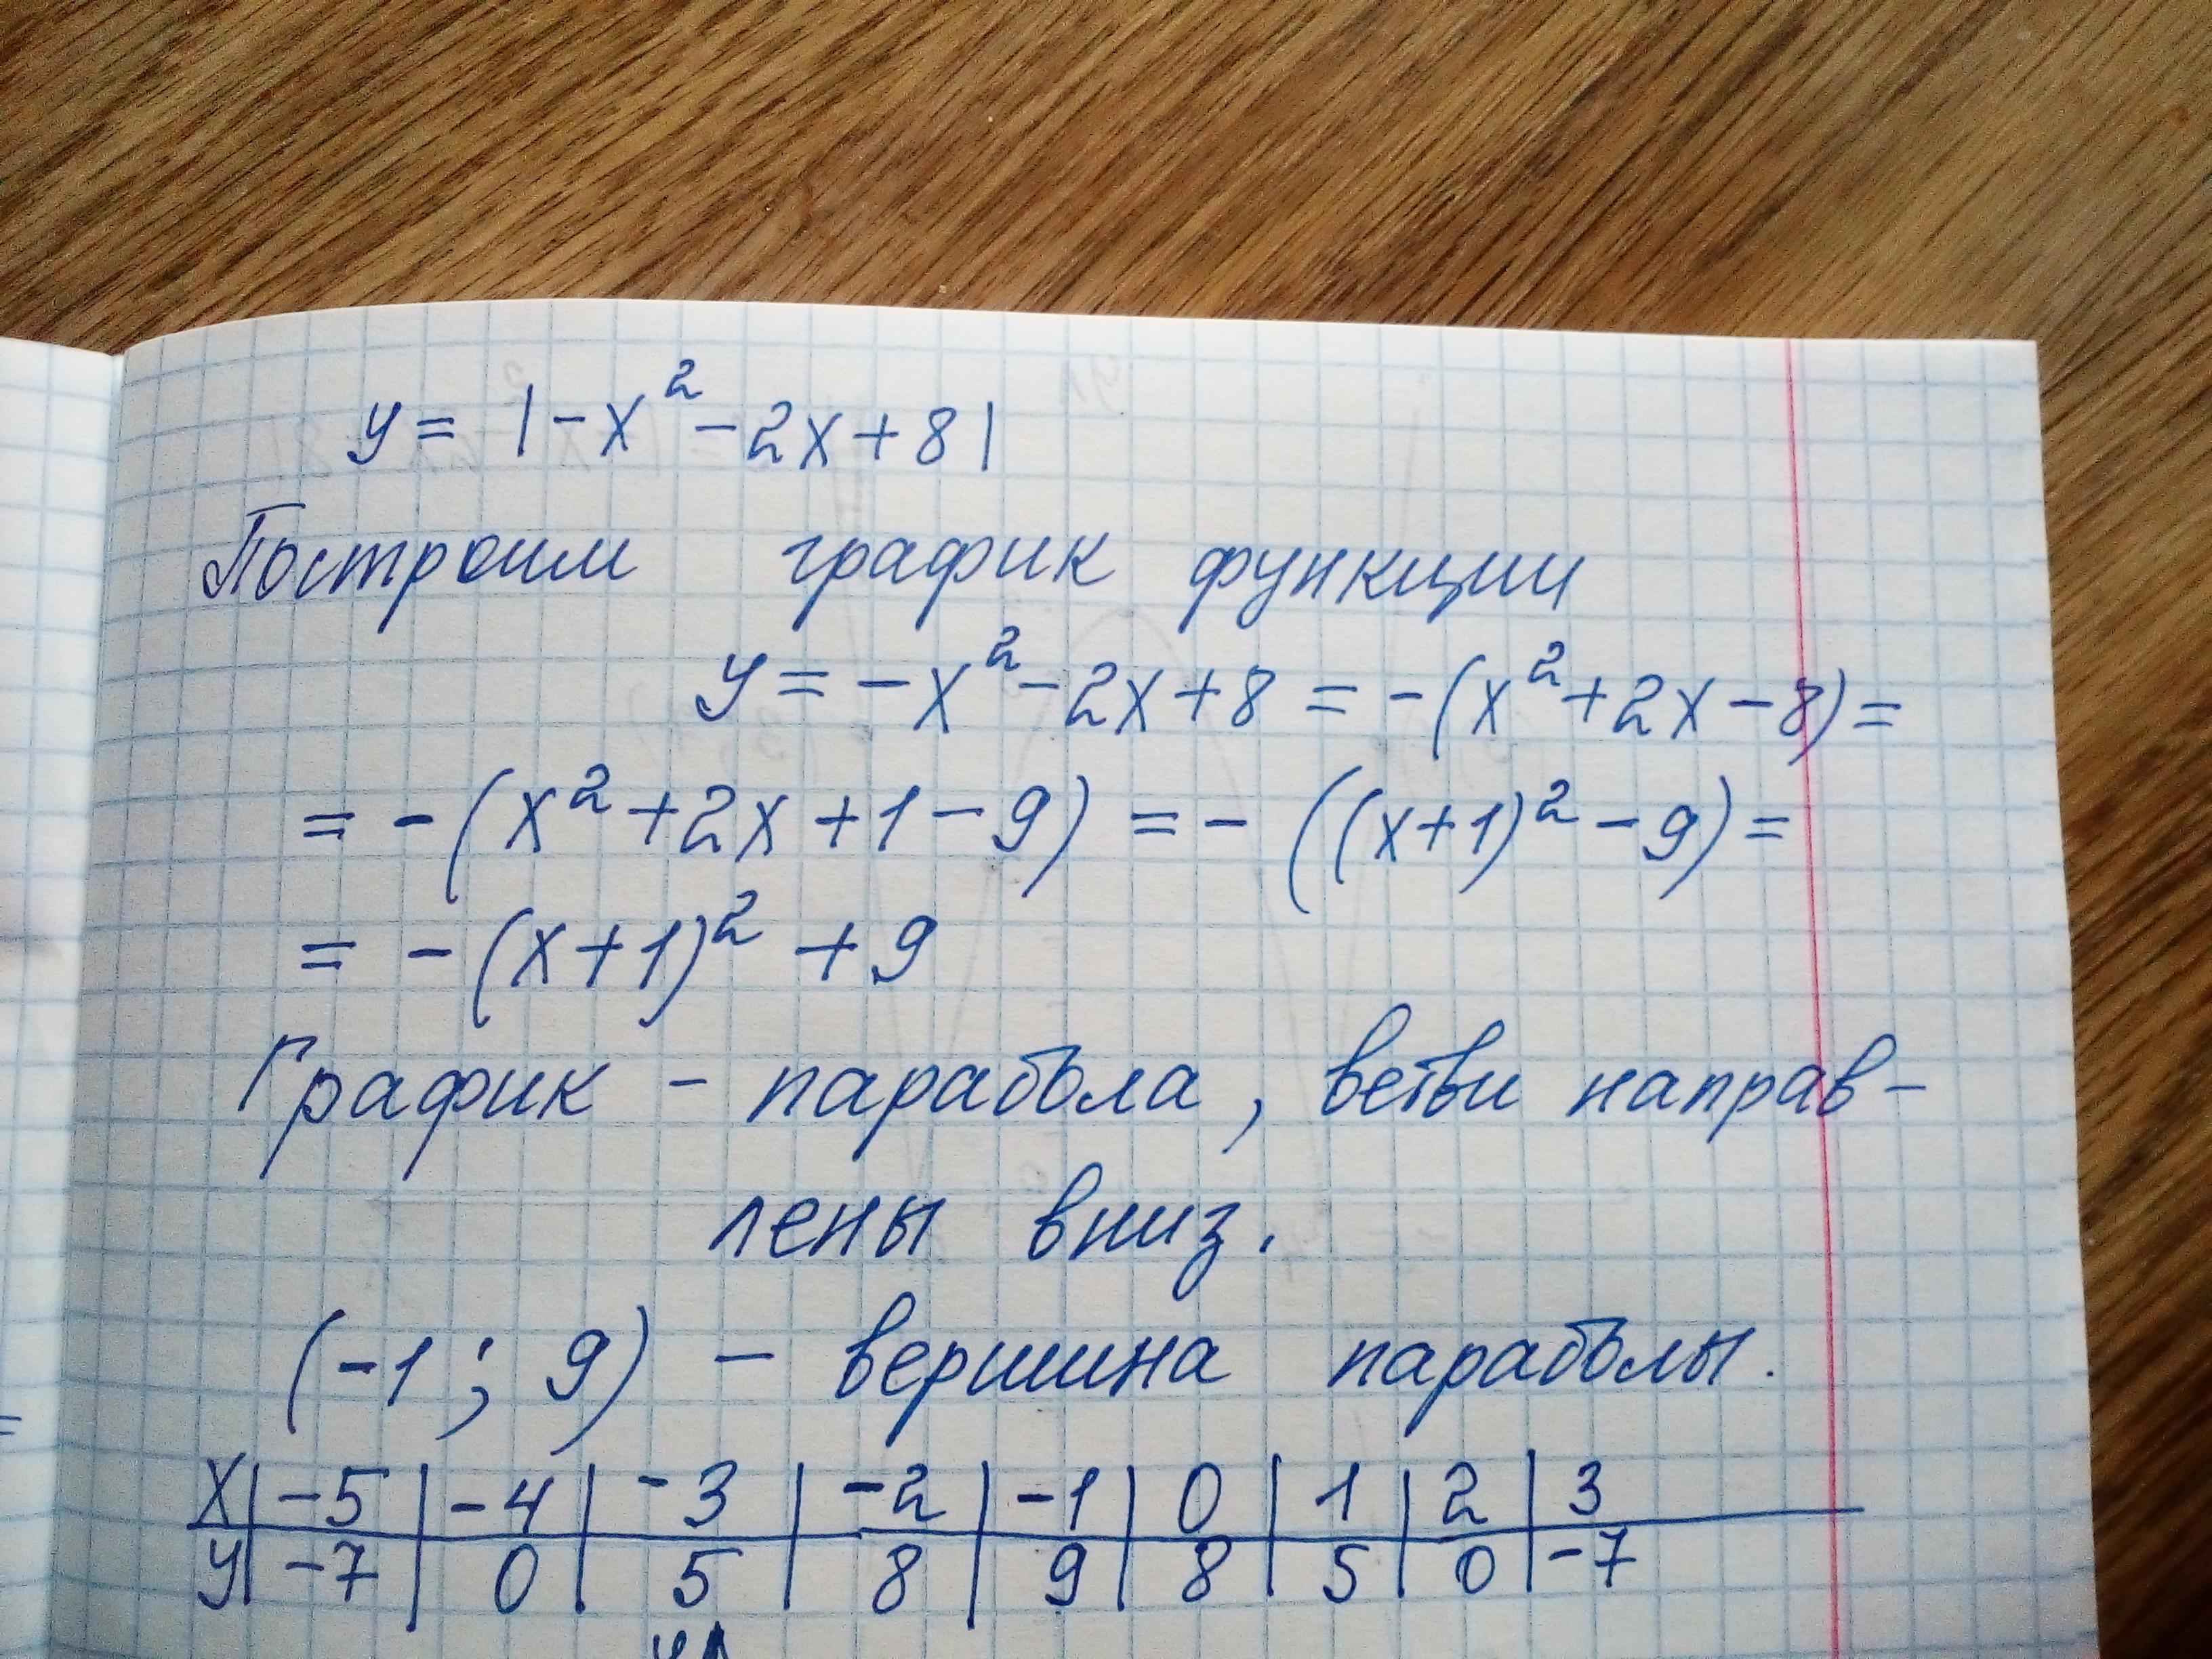 y = |-x² - 2x + 8|
Построим график функции
y = -x² - 2x + 8 = -(x² + 2x - 8) =
= -(x² + 2x + 1 - 9) = -((x+1)² - 9) =
= -(x+1)² + 9
График - парабола, ветви направ-
лены вниз.
(-1; 9) - вершина параболы.
x | -5 | -4 | -3 | -2 | -1 | 0 | 1 | 2 | 3
y | -7 | 0 | 5 | 8 | 9 | 8 | 5 | 0 | -7